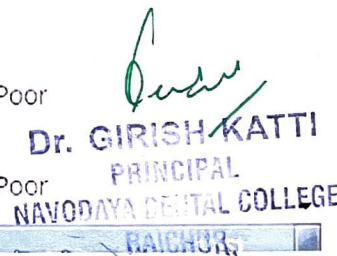 Poor
Dr. GIRISH KATTI
PRINCIPAL
Poor
NAVODAYA DENTAL COLLEGE
RAICHUR